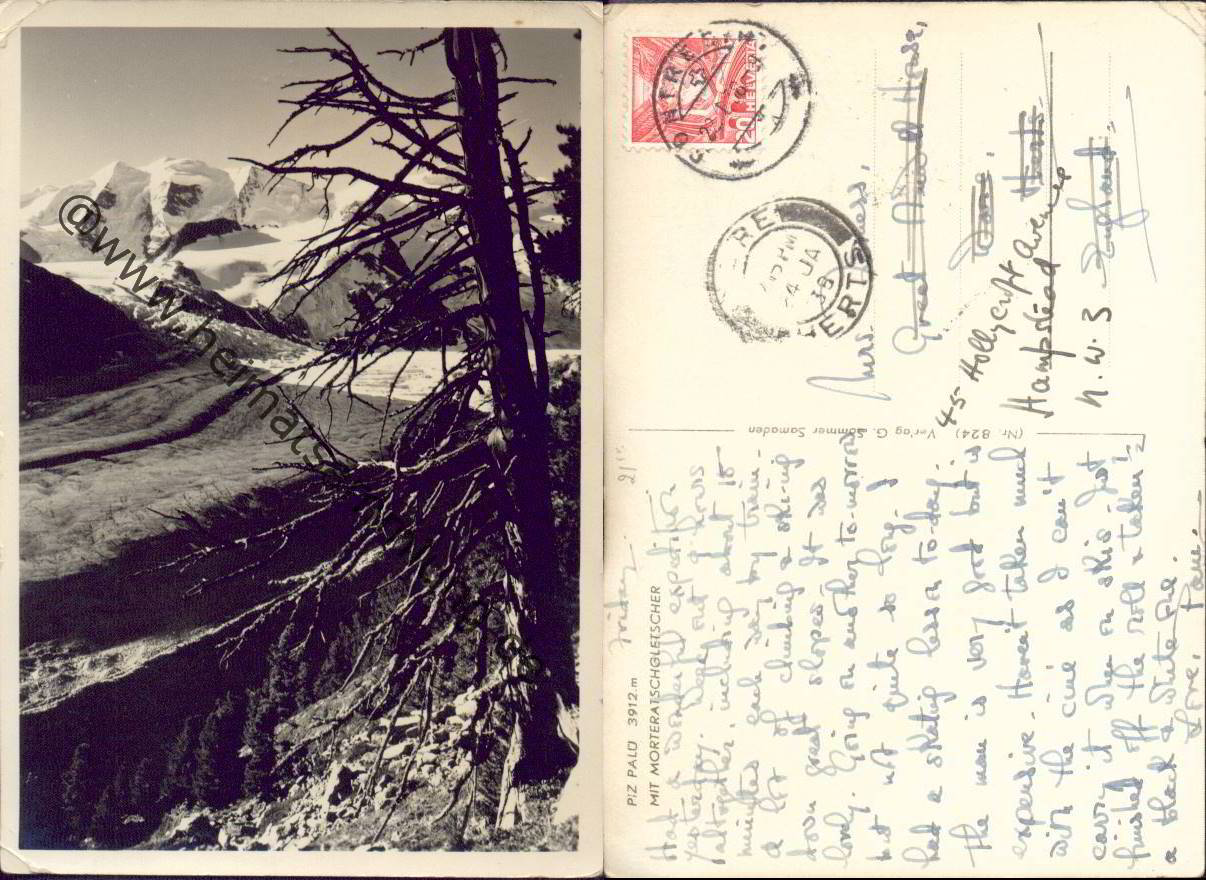 @www.heimats
PIZ PALÜ 3912.m
MIT MORTERATSCHGLETSCHER
Friday. 21st
Had a wonderful expedition
yesterday. Were out 9 hours
altogether, including about 15
minutes each way by train -
a lot of climbing & ski-ing
down great slopes - It was
lovely. Going on another to-morrow
but not quite so long. I
had a skating lesson to-day.
The man is very good but is
expensive. Haven't taken much
with the ciné as I can't
carry it when on skis - Just
finished off the roll & taken ½
a black & white one.
Love. Pam.
(Nr. 824) Verlag G. Sommer Samaden
HELVETIA
4 JA
38
HERTS
Mrs
Great House,
Herts.
England.
45 Hollycroft Avenue
Hampstead
N.W.3